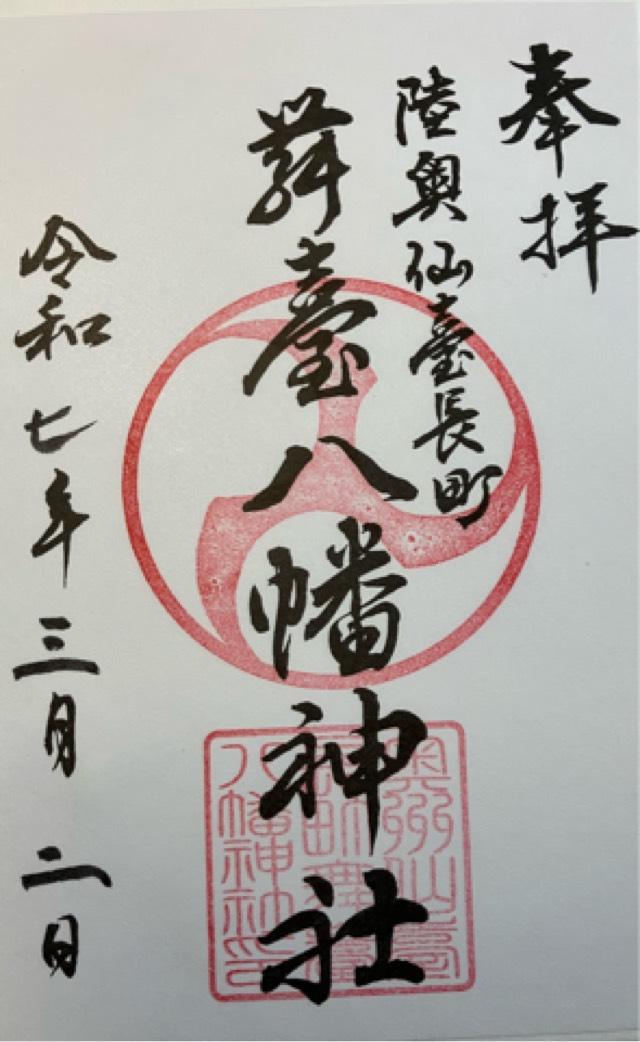 奉拝
陸奥仙臺長町
舞臺八幡神社
令和七年三月二日
八幡神社印